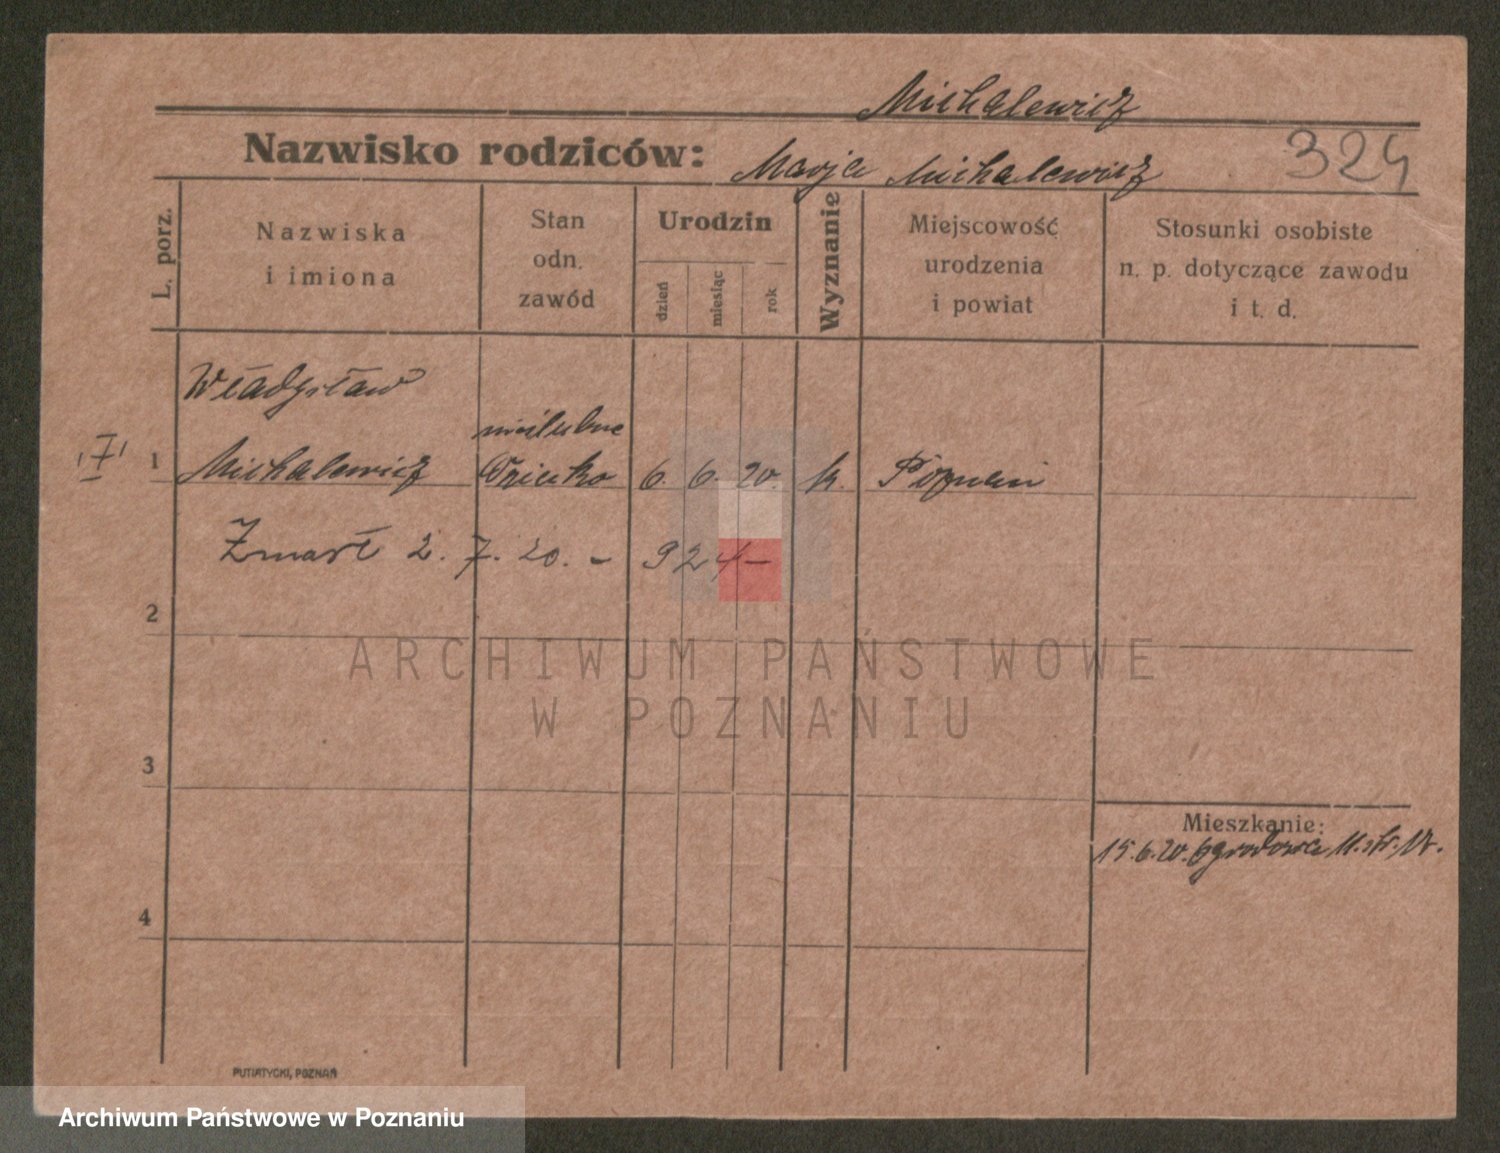 Michalewicz
Nazwisko rodziców: Marja Michalewicz 324
L. porz.
Nazwiska
i imiona
Stan
odn.
zawód
Urodzin
dzień
miesiąc
rok
Wyznanie
Miejscowość
urodzenia
i powiat
Stosunki osobiste
n. p. dotyczące zawodu
i t. d.
Władysław
nieślubne
1 Michalewicz Dziecko 6. 6. 20. k. Poznań
Zmarł 2. 7. 20. – 924 –
2
ARCHIWUM PAŃSTWOWE
W POZNANIU
3
Mieszkanie:
15.6.20. Ogrodowa 11.
4
PUTIATYCKI, POZNAŃ
Archiwum Państwowe w Poznaniu